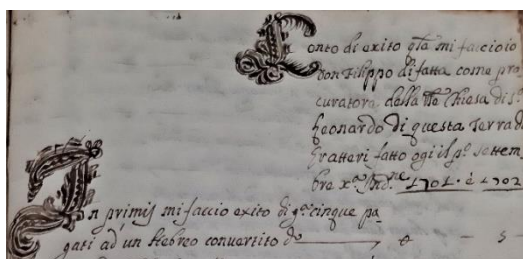 Conto di exito q̃ta mi faccioio
Don Filippo di fatta come pro
curatore della Ve Chiesa di S.
Leonardo di questa Terra di
Gratteri fatto ogi il p.º settem
bre x.ª Ind.ne 1701 · è 1702
In primis mi faccio exito di gr. cinque pa
gati ad un Hebreo convertito do 0 - 5